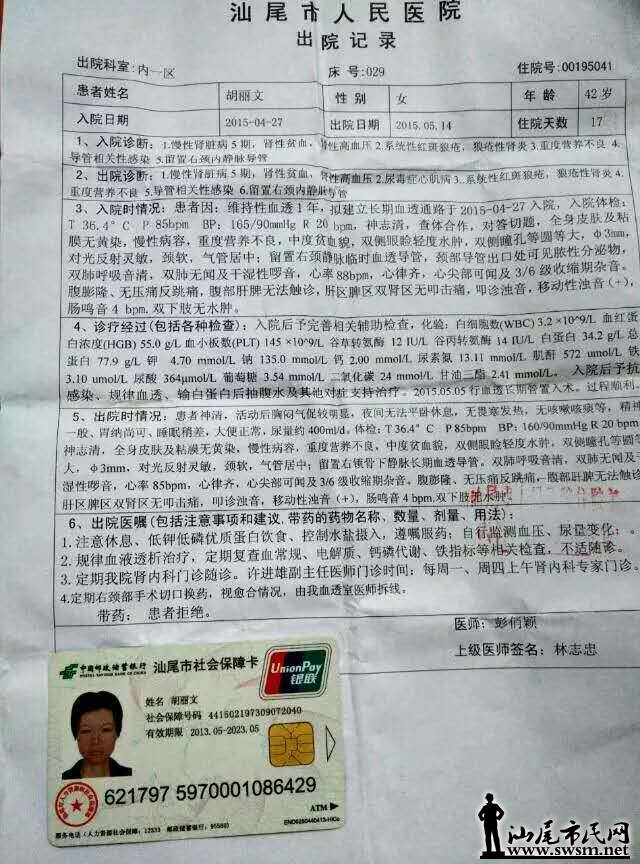 汕尾市人民医院
出院记录
出院科室：内一区 床号：029 住院号：00195041
患者姓名 胡丽文 性别 女 年龄 42岁
入院日期 2015-04-27 出院日期 2015.05.14 住院天数 17
1、入院诊断：1.慢性肾脏病5期，肾性贫血，肾性高血压 2.系统性红斑狼疮，狼疮性肾炎 3.重度营养不良 4.
导管相关性感染 5.留置右颈内静脉导管
2、出院诊断：1.慢性肾脏病5期，肾性贫血，肾性高血压 2.尿毒症心肌病 3.系统性红斑狼疮，狼疮性肾炎 4.
重度营养不良 5.导管相关性感染 6.留置右颈内静脉导管
3、入院时情况：患者因：维持性血透1年，拟建立长期血透通路于2015-04-27入院，入院体检：
T 36.4°C P 85bpm BP：165/90mmHg R 20 bpm，神志清，查体合作，对答切题，全身皮肤及粘
膜无黄染，慢性病容，重度营养不良，中度贫血貌，双侧眼睑轻度水肿，双侧瞳孔等圆等大，φ3mm，
对光反射灵敏，颈软，气管居中；留置右颈静脉临时血透导管，颈部导管出口处可见脓性分泌物，
双肺呼吸音清，双肺无闻及干湿性啰音，心率88bpm，心律齐，心尖部可闻及3/6级收缩期杂音。
腹膨隆、无压痛反跳痛，腹部肝脾无法触诊，肝区脾区双肾区无叩击痛，叩诊浊音，移动性浊音（+），
肠鸣音4 bpm.双下肢无水肿。
4、诊疗经过（包括各种检查）：入院后予完善相关辅助检查，化验：白细胞数(WBC) 3.2 ×10^9/L 血红蛋
白浓度(HGB) 55.0 g/L 血小板数(PLT) 145 ×10^9/L 谷草转氨酶 12 IU/L 谷丙转氨酶 14 IU/L 白蛋白 34.2 g/L 总
蛋白 77.9 g/L 钾 4.70 mmol/L 钠 135.0 mmol/L 钙 2.00 mmol/L 尿素氮 13.11 mmol/L 肌酐 572 umol/L 铁
3.10 umol/L 尿酸 364μmol/L 葡萄糖 3.54 mmol/L 二氧化碳 24 mmol/L 甘油三酯 2.41 mmol/L，入院后予抗
感染、规律血透、输白蛋白后抽腹水及其他对症支持治疗。2015.05.05行血透长期管置入术。过程顺利.
5、出院时情况：患者神清，活动后胸闷气促较明显，夜间无法平卧休息，无畏寒发热，无咳嗽咳痰等，精神
一般、胃纳尚可、睡眠稍差，大便正常，尿量约400ml/d，体检：T 36.4°C P 85bpm BP：160/90mmHg R 20 bpm
神志清，全身皮肤及粘膜无黄染，慢性病容，重度营养不良，中度贫血貌，双侧眼睑轻度水肿，双侧瞳孔等圆等
大，φ3mm，对光反射灵敏，颈软，气管居中；留置右锁骨下静脉长期血透导管。双肺呼吸音清，双肺无闻及干
湿性啰音，心率85bpm，心律齐，心尖部可闻及3/6级收缩期杂音。腹膨隆、无压痛反跳痛，腹部肝脾无法触诊
肝区脾区双肾区无叩击痛，叩诊浊音，移动性浊音（+），肠鸣音4 bpm.双下肢无水肿。
6、出院医嘱（包括注意事项和建议、带药的药物名称、数量、剂量、用法）：
1.注意休息，低钾低磷优质蛋白饮食、控制水盐摄入，遵嘱服药；自行监测血压、尿量变化；。
2.规律血液透析治疗，定期复查血常规、电解质、钙磷代谢、铁指标等相关检查，不适随诊。
3.定期我院肾内科门诊随诊。许进雄副主任医师门诊时间：每周一、周四上午肾内科专家门诊。
4.定期右颈部手术切口换药，视愈合情况，由我血透室医师拆线。
带药：患者拒绝。
医师：彭俏颖
上级医师签名：林志忠
中国邮政储蓄银行
POSTAL SAVINGS BANK OF CHINA
汕尾市社会保障卡
UnionPay
银联
姓名 胡丽文
社会保障号码 441502197309072040
有效期限 2013.05-2023.05
621797 5970001086429
ATM
服务电话（人力资源社会保障：12333 邮政储蓄银行：95580）
汕尾市民网
www.swsm.net